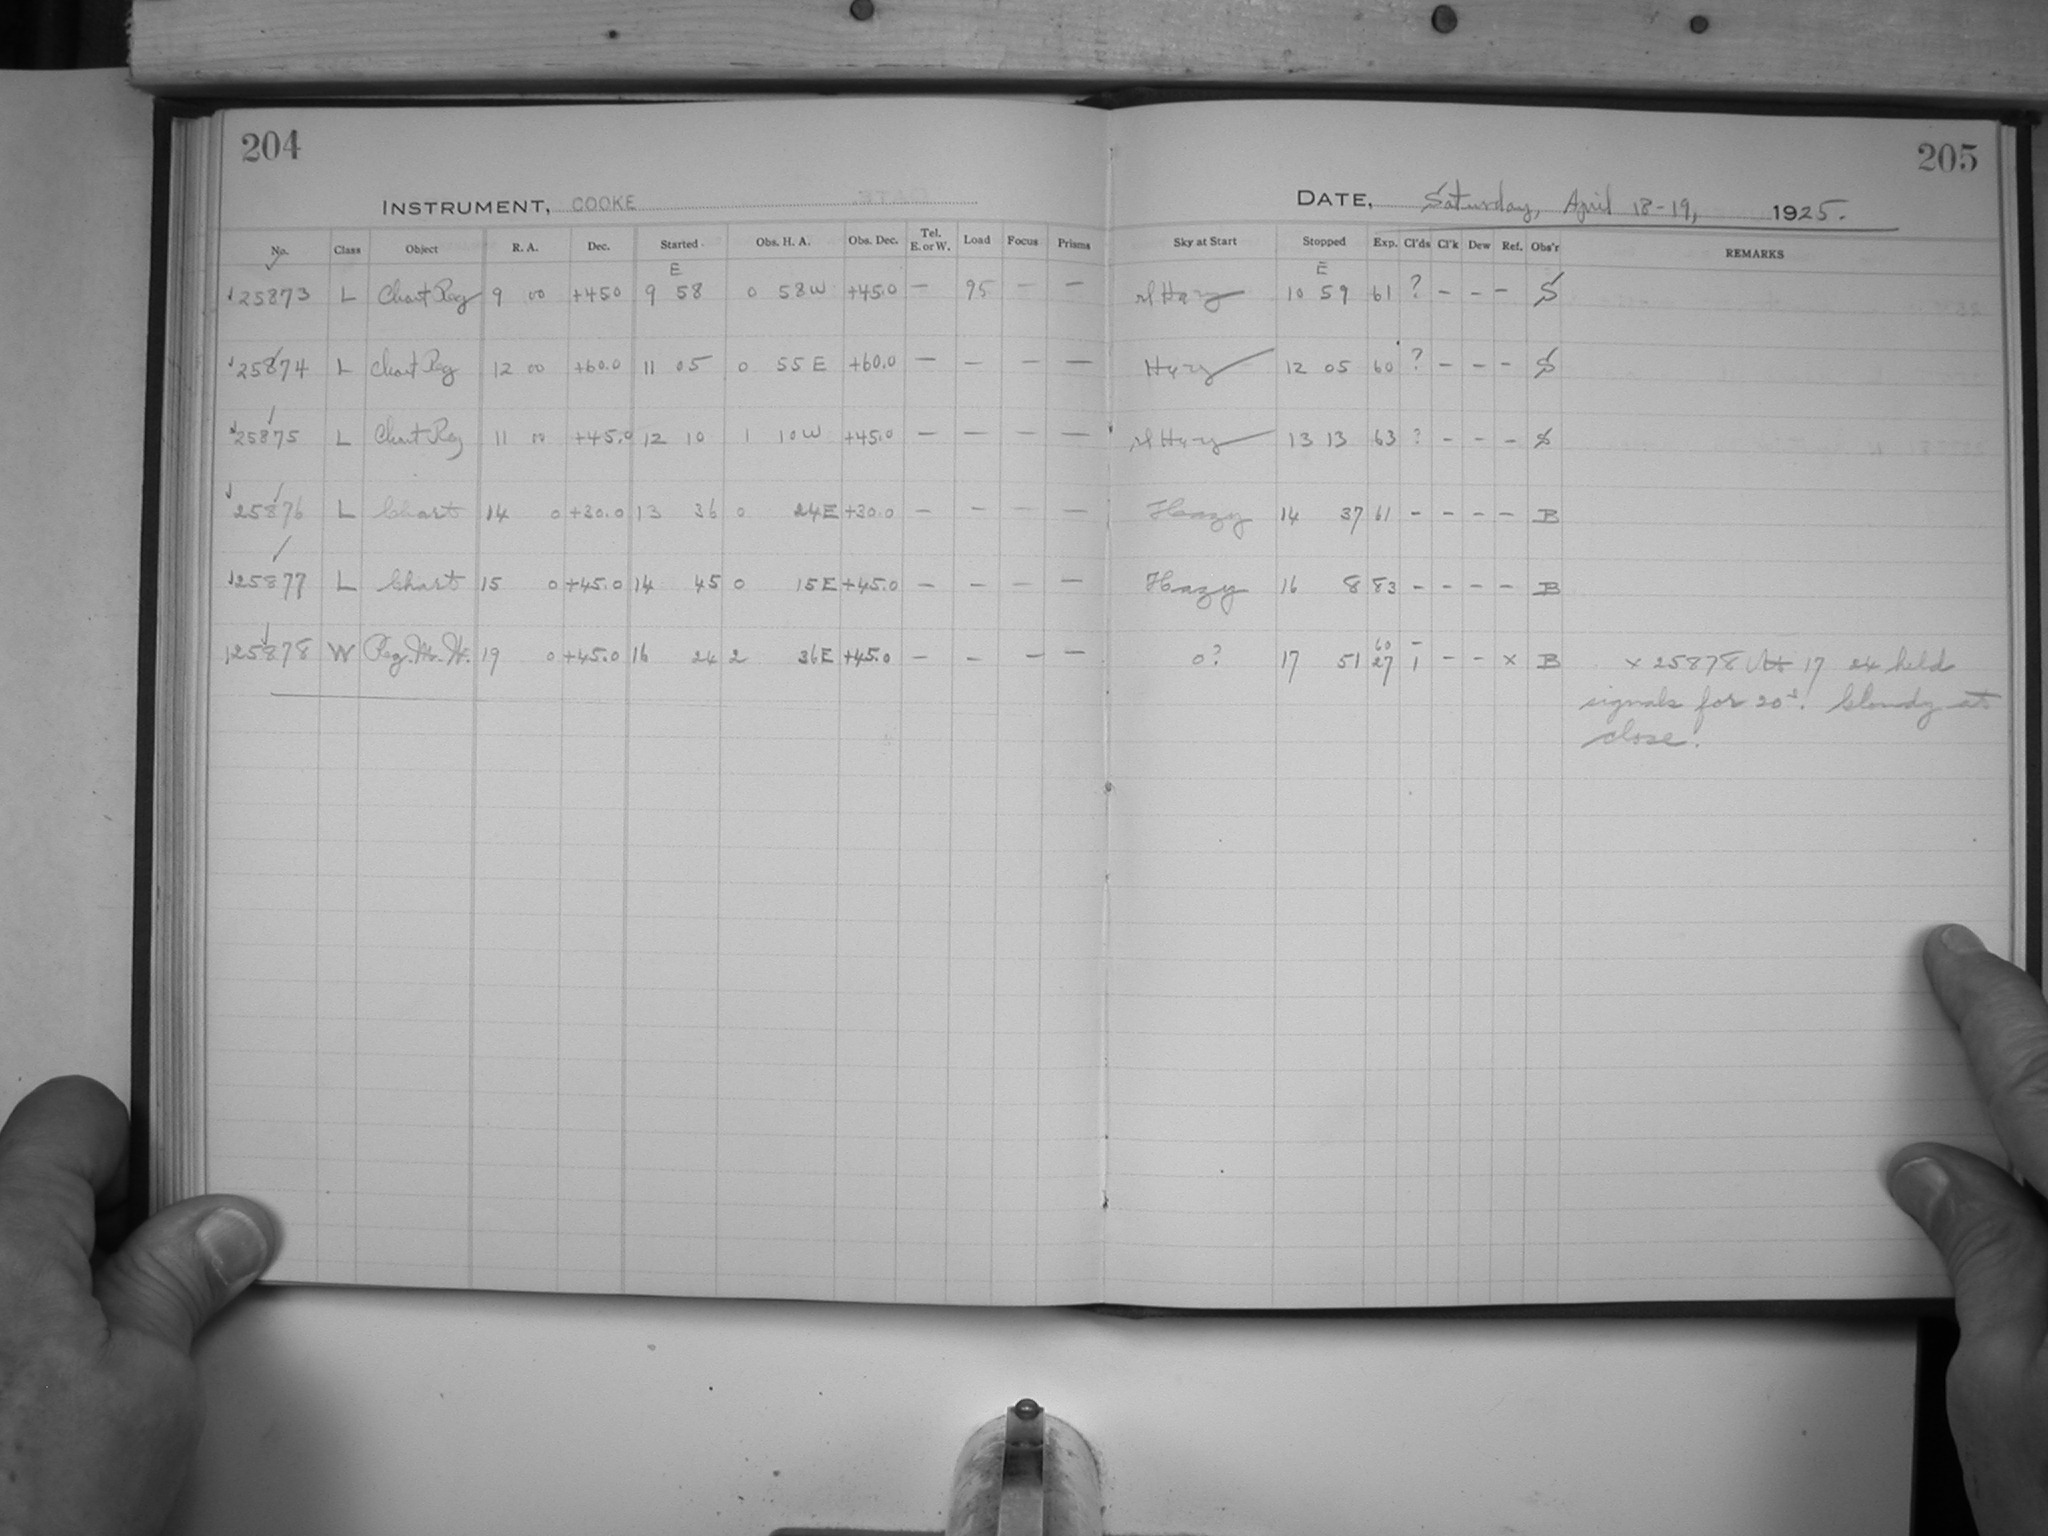 204
205
INSTRUMENT, COOKE
DATE, Saturday, April 18-19, 1925.
No. Class Object R. A. Dec. Started Obs. H. A. Obs. Dec. Tel. E. or W. Load Focus Prisms Sky at Start Stopped Exp. Cl'ds Cl'k Dew Ref. Obs'r REMARKS
E E
25873 L Chart Reg 9 00 +45.0 9 58 0 58 W +45.0 — 95 — — sl Hazy 10 59 61 ? - - - S
25874 L Chart Reg 12 00 +60.0 11 05 0 55 E +60.0 — — — — Hazy 12 05 60 ? - - - S
25875 L Chart Reg 11 00 +45.0 12 10 1 10 W +45.0 — — — — sl Hazy 13 13 63 ? - - - S
25876 L Chart 14 0 +30.0 13 36 0 24 E +30.0 — — — — Hazy 14 37 61 - - - - B
25877 L Chart 15 0 +45.0 14 45 0 15 E +45.0 — — — — Hazy 16 8 83 - - - - B
60 -
25878 W 19 0 +45.0 16 24 2 36 E +45.0 — — — — 0? 17 51 27 1 - - x B x 25878 At 17 24 held
signals for 20s. Cloudy at
close.